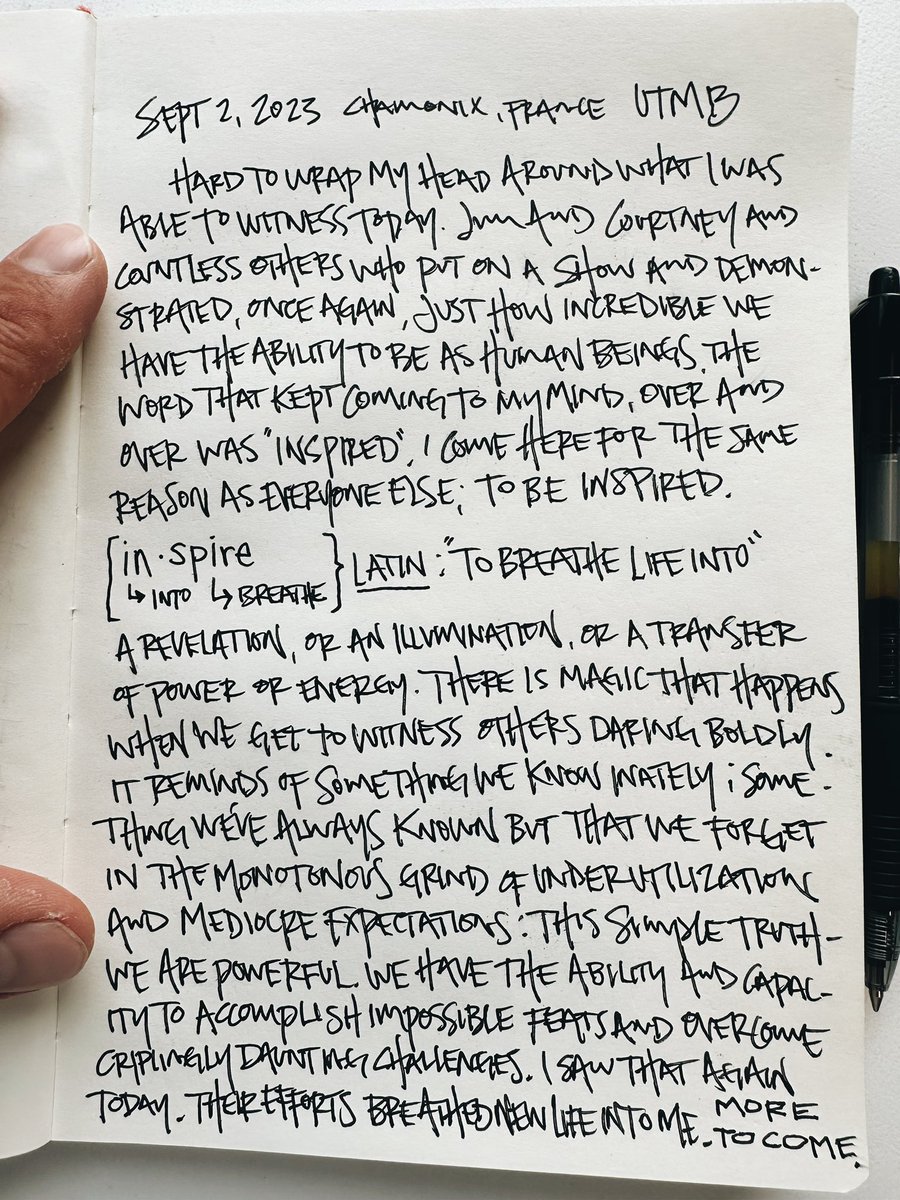 SEPT 2, 2023 CHAMONIX, FRANCE UTMB
HARD TO WRAP MY HEAD AROUND WHAT I WAS
ABLE TO WITNESS TODAY. JIM AND COURTNEY AND
COUNTLESS OTHERS WHO PUT ON A SHOW AND DEMON-
STRATED, ONCE AGAIN, JUST HOW INCREDIBLE WE
HAVE THE ABILITY TO BE AS HUMAN BEINGS. THE
WORD THAT KEPT COMING TO MY MIND, OVER AND
OVER WAS "INSPIRED". I COME HERE FOR THE SAME
REASON AS EVERYONE ELSE; TO BE INSPIRED.
[in·spire } LATIN: "TO BREATHE LIFE INTO"
↳ INTO ↳ BREATHE
A REVELATION, OR AN ILLUMINATION, OR A TRANSFER
OF POWER OR ENERGY. THERE IS MAGIC THAT HAPPENS
WHEN WE GET TO WITNESS OTHERS DARING BOLDLY.
IT REMINDS OF SOMETHING WE KNOW INATELY; SOME-
THING WE'VE ALWAYS KNOWN BUT THAT WE FORGET
IN THE MONOTONOUS GRIND OF UNDERUTILIZATION
AND MEDIOCRE EXPECTATIONS: THIS SIMPLE TRUTH-
WE ARE POWERFUL. WE HAVE THE ABILITY AND CAPAC-
ITY TO ACCOMPLISH IMPOSSIBLE FEATS AND OVERCOME
CRIPLINGLY DAUNTING CHALLENGES. I SAW THAT AGAIN
TODAY. THEIR EFFORTS BREATHED NEW LIFE INTO ME. MORE
TO COME.